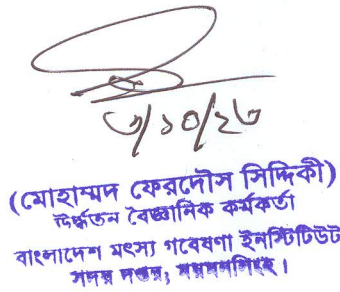 ৩/১০/২৩
(মোহাম্মদ ফেরদৌস সিদ্দিকী)
ঊর্দ্ধতন বৈজ্ঞানিক কর্মকর্তা
বাংলাদেশ মৎস্য গবেষণা ইনস্টিটিউট
সদর দপ্তর, ময়মনসিংহ।